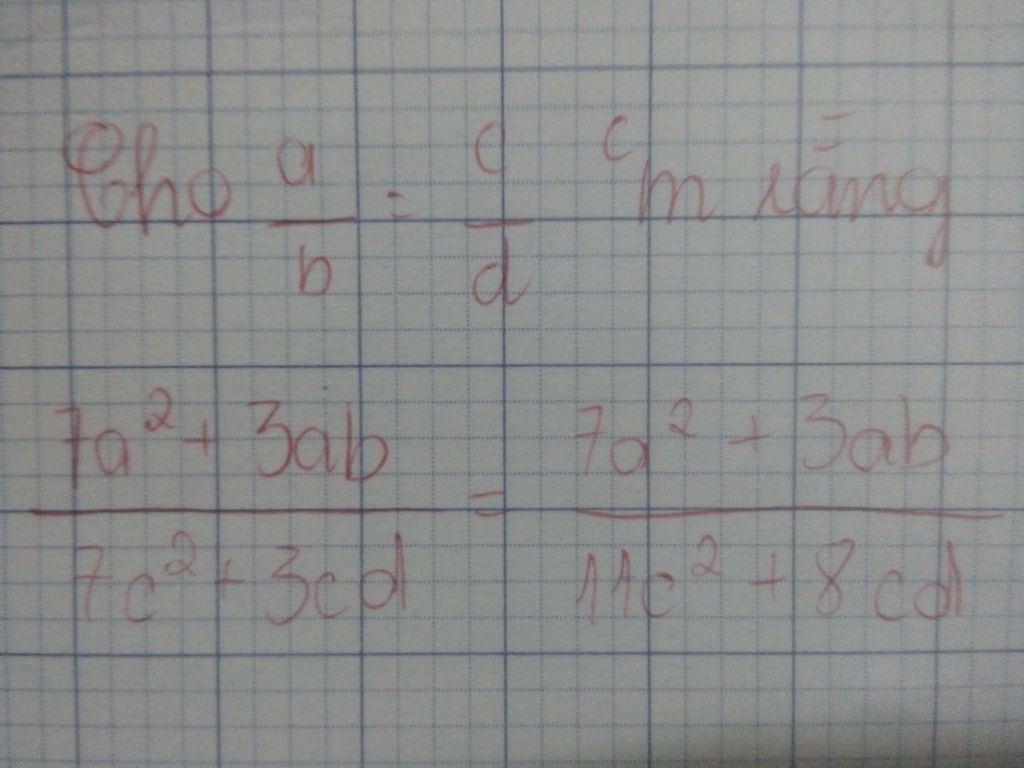 Cho a/b = c/d cm rằng
7a² + 3ab / 7c² + 3cd = 7a² + 3ab / 11c² + 8cd